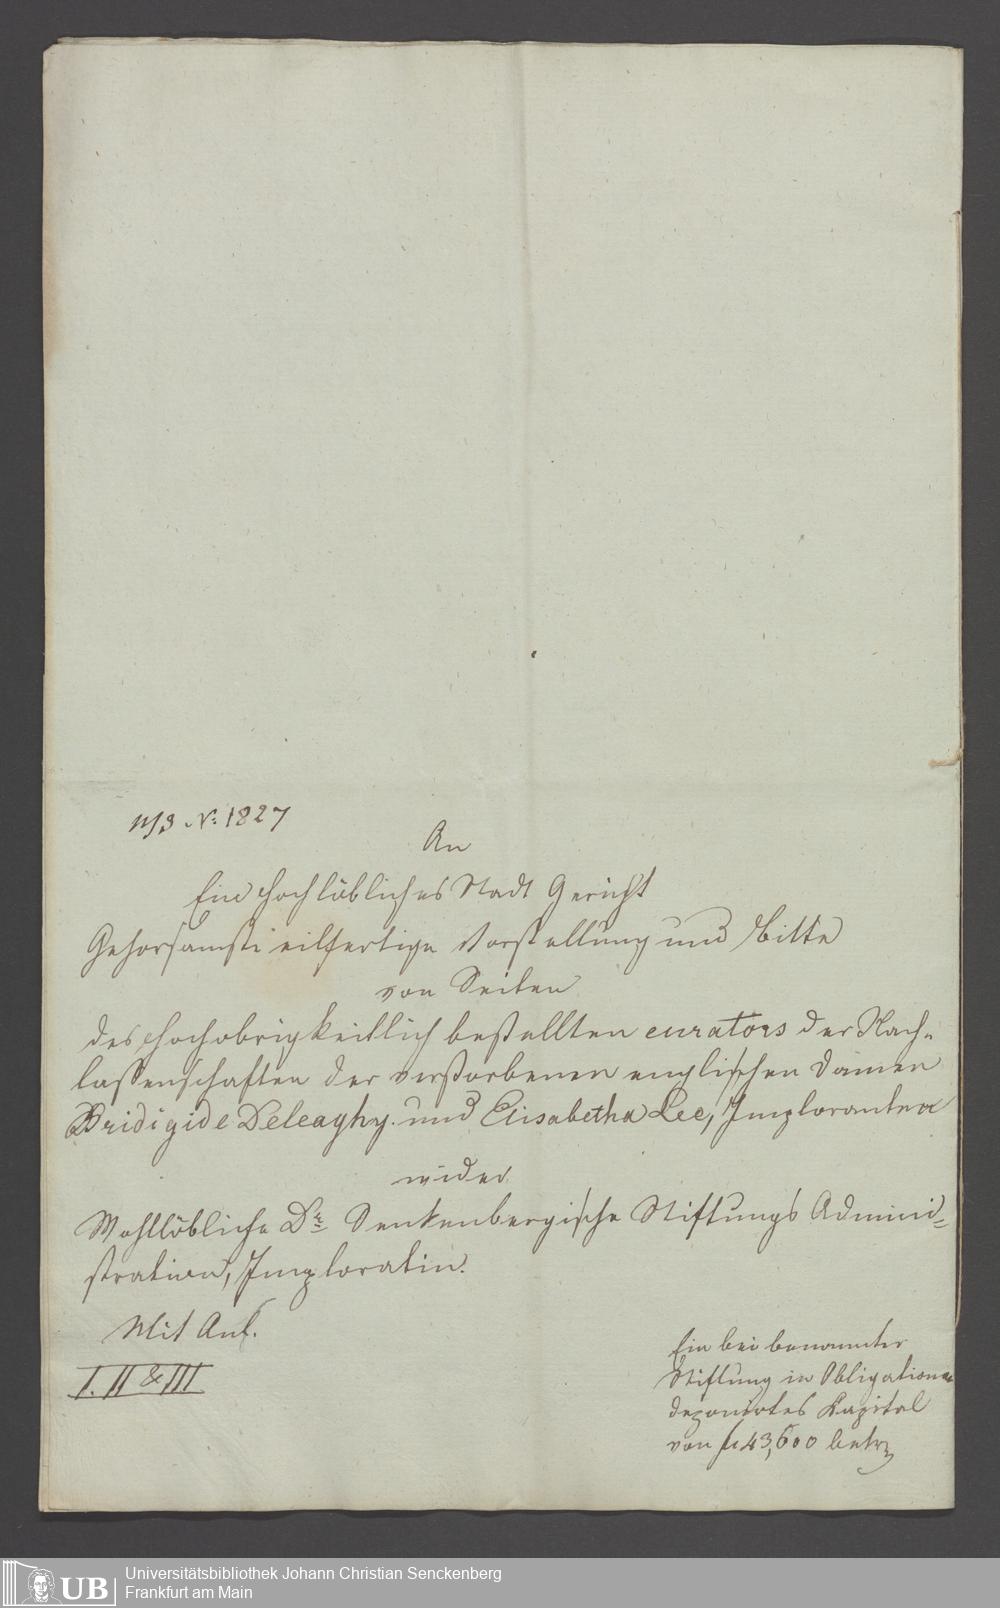 No: 1827
An
Ein Hochlöbliches Stadt Gericht
Gehorsamste eilfertige Vorstellung und Bitte
von Seiten
des Hochobrigkeitlich bestellten curators der Nach-
lassenschaften der verstorbenen englischen Damen
Bridigide Deleaghy. und Elisabetha Lee, Imploranten
wider
Wohllöbliche Dr. Senkenbergische Stiftungs Admini=
stration, Imploratin.
Mit Anl.
I. II & III
Ein bei benannter
Stiftung in Obligationen
deponirtes Kapital
von fl 43,600 betr
Universitätsbibliothek Johann Christian Senckenberg
Frankfurt am Main
UB